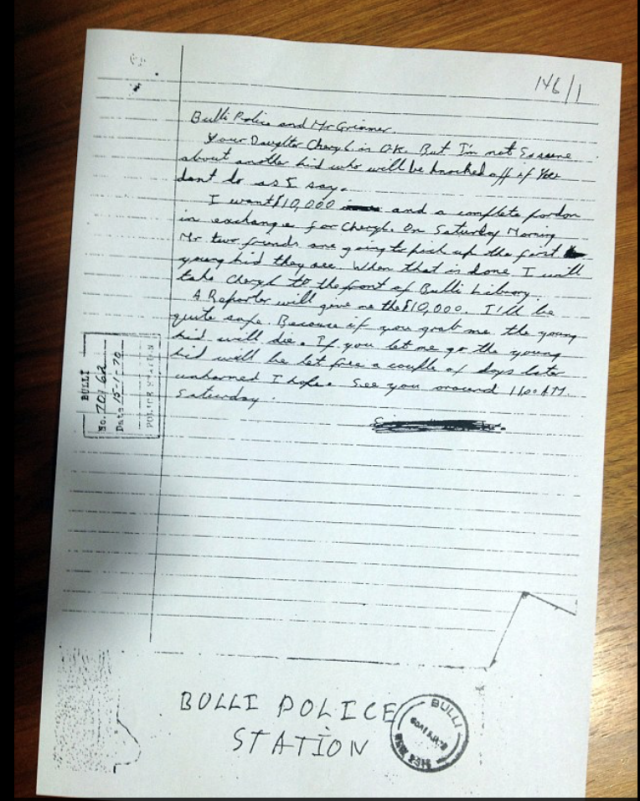 146/1
Bulli Police and Mr Grimmer.
Your Daughter Cheryl is OK. But I'm not so sure
about another kid who will be knocked off if you
dont do as I say.
I want $10,000 and a complete pardon
in exchange for Cheryl. On Saturday Morning
Mr two friends are going to pick up the first
young kid they see. When that is done I will
take Cheryl to the front of Bulli Library.
A Reporter will give me the $10,000. I'll be
quite safe. Because if you grab me the young
kid will die. If you let me go the young
kid will be let free a couple of days late
unharmed I hope. See you around 11oo AM.
Saturday.
BULLI
No. 70/62
Date 15-1-70
POLICE STATION
BULLI POLICE
STATION
BULLI